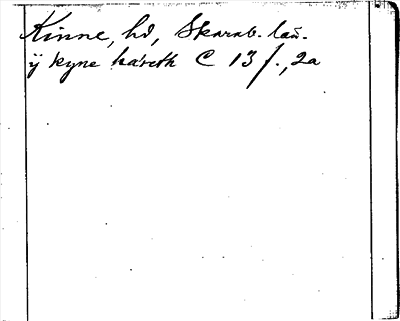 Kinne, hd, Skarab. län.
ÿ kyne häreth C 13 f., 2a